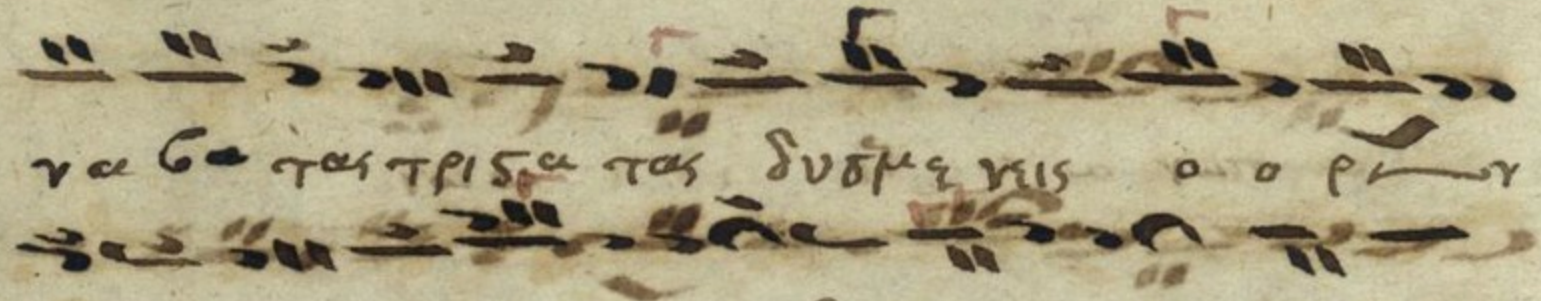 να βα τας τριϛα τας δυσμε νεις ο ο